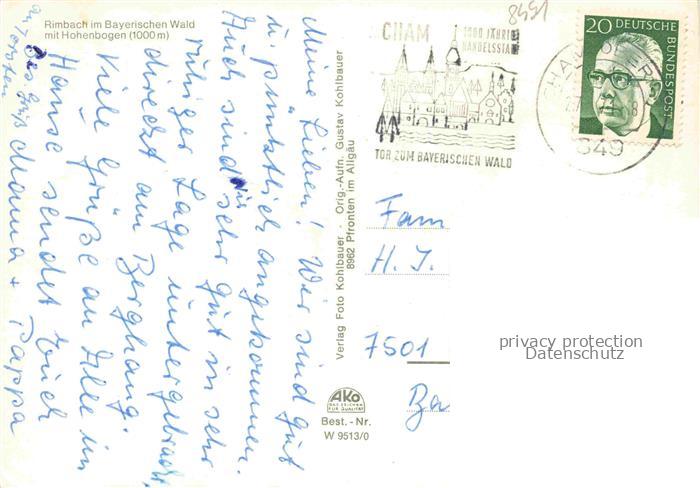 Rimbach im Bayerischen Wald
mit Hohenbogen (1000 m)
Meine Lieben! Wir sind gut
u. pünktlich angekommen.
Auch sind wir sehr gut in sehr
ruhiger Lage untergebracht,
direkt am Berghang.
Viele Grüße an Alle im
Hause sendet Euch
Mama + Pappa
Verlag Foto Kohlbauer · Orig.-Aufn. Gustav Kohlbauer
8962 Pfronten im Allgäu
8491
CHAM
1000 JÄHRIGE
HANDELSSTADT
TOR ZUM BAYERISCHEN WALD
20 DEUTSCHE
BUNDESPOST
849
Fam
H. J.
7501
Ba
privacy protection
Datenschutz
AKO
DAS ZEICHEN
FÜR QUALITÄT
Best.-Nr.
W 9513/0